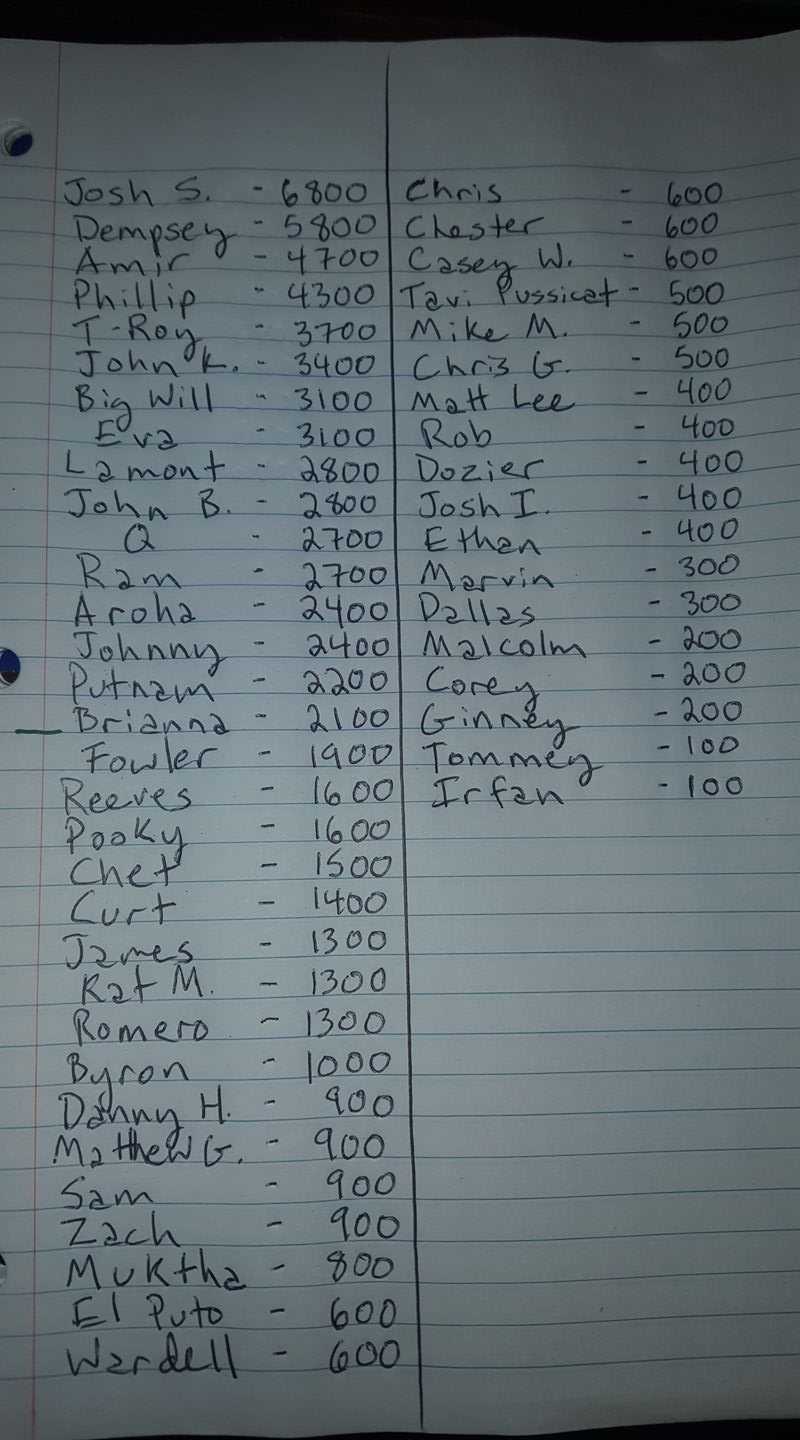 Josh S. - 6800
Dempsey - 5800
Amir - 4700
Phillip - 4300
T-Roy - 3700
John K. - 3400
Big Will - 3100
Eva - 3100
Lamont - 2800
John B. - 2800
Q - 2700
Ram - 2700
Aroha - 2400
Johnny - 2400
Putnam - 2200
Brianna - 2100
Fowler - 1900
Reeves - 1600
Pooky - 1600
Chet - 1500
Curt - 1400
James - 1300
Rat M. - 1300
Romero - 1300
Byron - 1000
Danny H. - 900
Matthew G. - 900
Sam - 900
Zach - 900
Muktha - 800
El Puto - 600
Wardell - 600
Chris - 600
Chester - 600
Casey W. - 600
Tavi Pussicat - 500
Mike M. - 500
Chris G. - 500
Matt Lee - 400
Rob - 400
Dozier - 400
Josh I. - 400
Ethan - 400
Marvin - 300
Dallas - 300
Malcolm - 200
Corey - 200
Ginney - 200
Tommey - 100
Irfan - 100